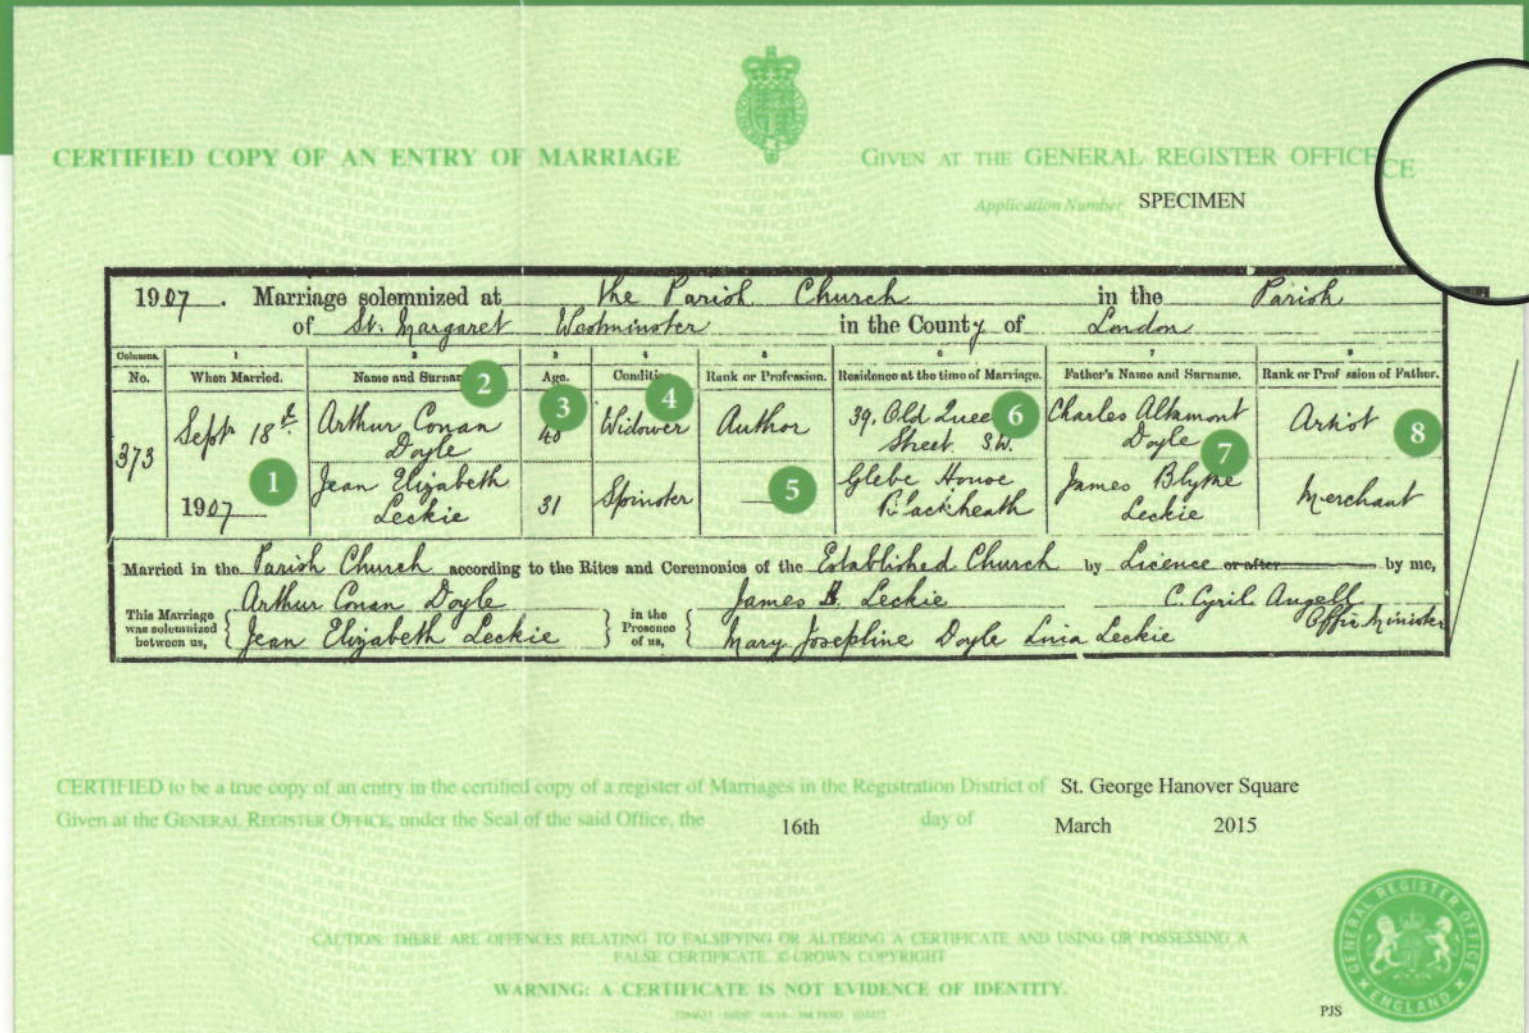 CERTIFIED COPY OF AN ENTRY OF MARRIAGE
GIVEN AT THE GENERAL REGISTER OFFICE
CE
Application Number SPECIMEN
1907. Marriage solemnized at the Parish Church in the Parish
of St. Margaret Westminster in the County of London
Columns. 1 2 3 4 5 6 7 8
No. When Married. Name and Surnam 2 Age. Conditi Rank or Profession. Residence at the time of Marriage. Father's Name and Surname. Rank or Prof ssion of Father.
373 Sept 18th 1907 1
Arthur Conan Doyle 3 40 Widower 4 Author 39, Old Quee Street S.W. 6 Charles Altamont Doyle 7 Artist 8
Jean Elizabeth Leckie 31 Spinster — 5 Glebe House Blackheath James Blythe Leckie Merchant
Married in the Parish Church according to the Rites and Ceremonies of the Established Church by Licence or after by me,
This Marriage was solemnized between us, Arthur Conan Doyle Jean Elizabeth Leckie in the Presence of us, James B. Leckie Mary Josephine Doyle Leckie C. Cyril Angell Minister
CERTIFIED to be a true copy of an entry in the certified copy of a register of Marriages in the Registration District of St. George Hanover Square
Given at the GENERAL REGISTER OFFICE, under the Seal of the said Office, the 16th day of March 2015
CAUTION: THERE ARE OFFENCES RELATING TO FALSIFYING OR ALTERING A CERTIFICATE AND USING OR POSSESSING A
FALSE CERTIFICATE. © CROWN COPYRIGHT
WARNING: A CERTIFICATE IS NOT EVIDENCE OF IDENTITY.
GENERAL REGISTER OFFICE
ENGLAND
PJS